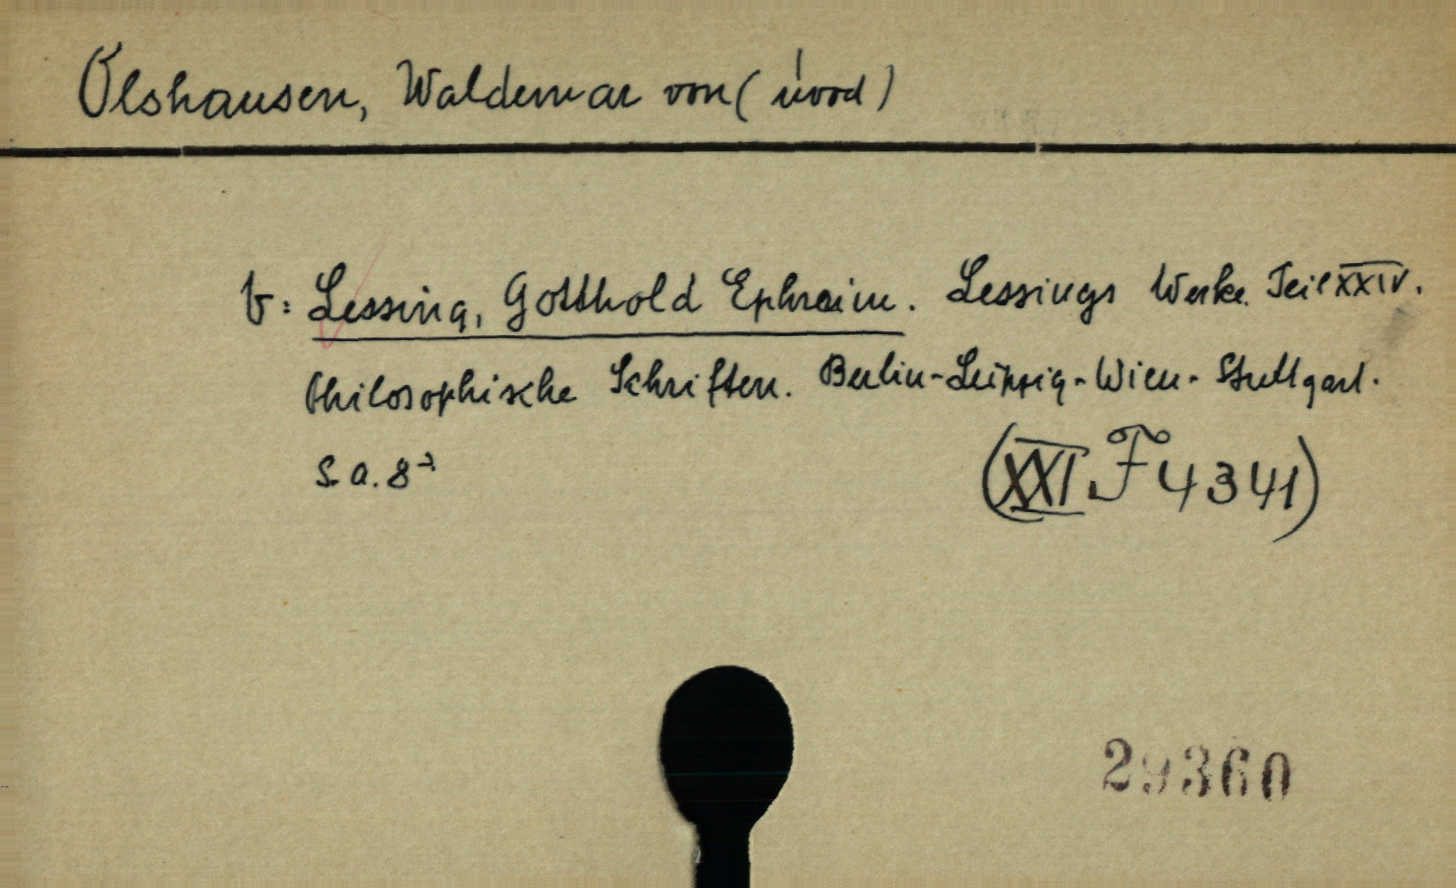 Olshausen, Waldemar von (úvod)
v: Lessing, Gotthold Ephraim. Lessings Werke. Teil XXIV.
Philosophische Schriften. Berlin-Leipzig-Wien-Stuttgart.
S. a. 8°
(XXI F 4341)
29360